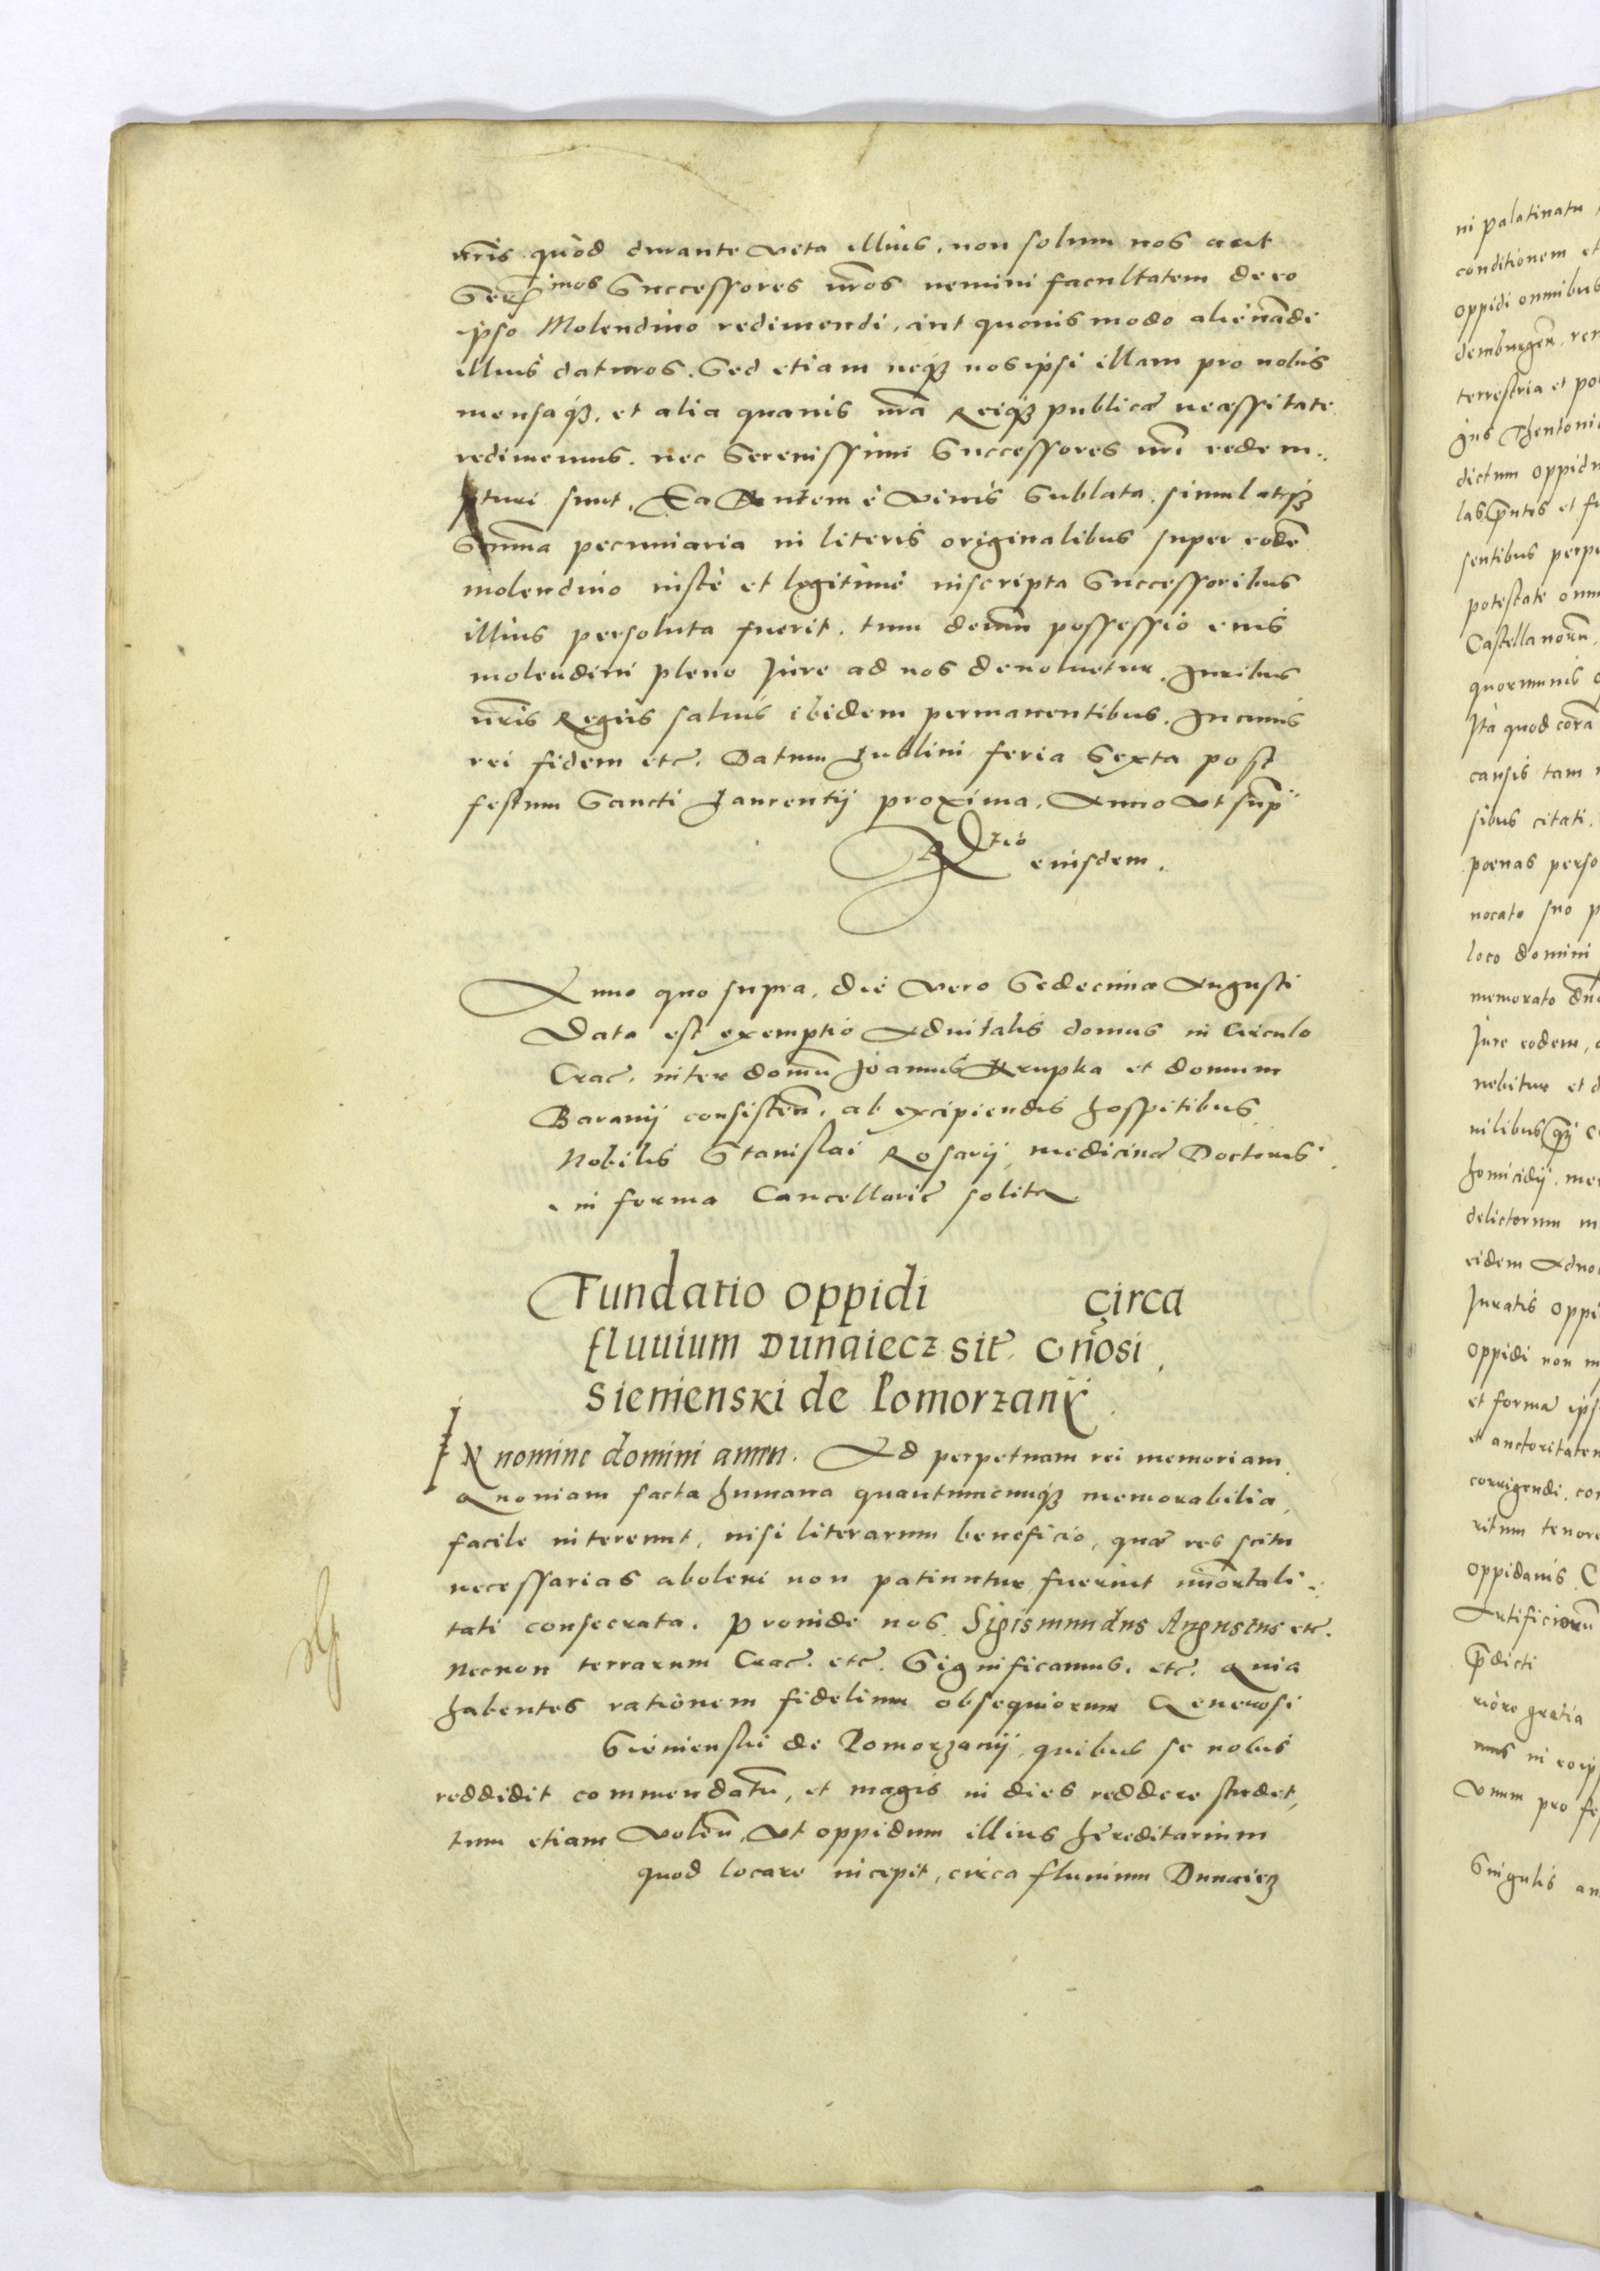 nris. quod durante vita illius, non solum nos aut
Ser^mos Successores nros nemini facultatem de eo
ipso Molendino redimendi, aut quouis modo alienandi
illius daturos. Sed etiam neq3 nos ipsi illam pro nobis
mensaq3, et alia quauis nra Reiq3 publicæ necessitate
redimemus. nec Serenissimi Successores nri redem..
pturi sunt. Ea autem è viuis sublata, simulatq3
Summa pecuniaria in literis originalibus super eodē
molendino iustè et legitimè inscripta Successoribus
illius persoluta fuerit. tum demū possessio eius
molendini pleno Jure ad nos deuoluetur. Juribus
nris Regiis saluis ibidem permanentibus. In cuius
rei fidem etc. Datum Lublini feria Sexta post
festum Sancti Laurentij proxima. Anno vt supra
R^tio eiusdem.
Anno quo supra, die vero Sedecima Augusti
Data est exemptio Aduitalis domus in Circulo
Crac. inter domū Joannis Krupka et domum
Baranij consisteñ. ab excipiendis hospitibus
Nobilis Stanislai Rosarij medicinæ Doctoris
in forma Cancellariæ solita
Fundatio oppidi circa
fluuium Dunaiecz site Gñosi
Sienienski de Pomorzanÿ
IN nomine domini amen. Ad perpetuam rei memoriam
Quoniam facta humana quantumcunq3 memorabilia
facile intereunt, nisi literarum beneficio, quæ res scitu
necessarias aboleri non patiuntur fuerint im̄ortali..
tati consecrata. Proinde nos Sigismundus Augustus etc.
Necnon terrarum Crac. etc. Significamus. etc. Quia
habentes rationem fidelium obsequiorum Generosi
Sienienski de Pomorzanij, quibus se nobis
reddidit commendatū, et magis in dies reddere studet,
tum etiam voleñ, vt oppidum illius hæreditarium
quod locare incepit, circa fluuium Dunaiecz
ni palatinatu
conditionem et
oppidi omnibus
demburgeñ. rem
terrestria et po
Jus Theutonic
dictum oppidu
las
sentibus perpe
potestate omni
Castellanorū,
quorumuis
Ita quod corā
causis tam
sibus citati.
poenas perso
uocato suo p
loco domini
memorato dño
Jure eodem,
nebitur et d
uilibus
homicidij. me
delictorum in
eidem Aduo
Juratis oppi
oppidi non in
et forma ips
et auctoritatem
corrigendi, con
ritum tenore
oppidanis
Artificiorū
p̄dicti
riore gratia
mus in eo ip
Vnum pro fe
Singulis an